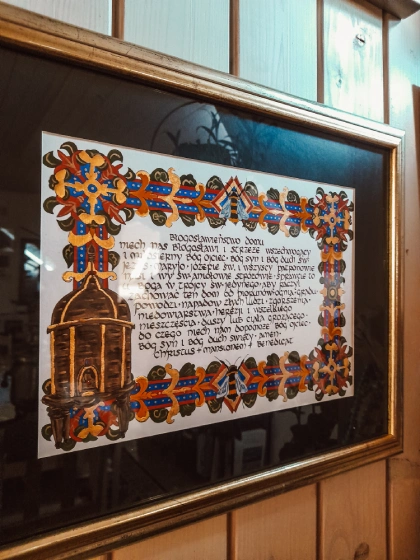 Błogosławieństwo domu
Niech nas błogosławi i strzeże wszechmogący
i miłosierny Bóg Ojciec· Bóg Syn i Bóg Duch Św·
Jezu· Maryjo· Józefie św· i wszyscy patronowie
i wy św·aniołowie stróżowie· sprawcie to
u Boga w Trójcy św·jedynego· aby raczył
zachować ten dom od piorunów·ognia·gradu·
powodzi· napadów złych ludzi· zgorszenia·
niedowiarstwa· herezji i wszelkiego
nieszczęścia· duszy lub ciału grożącego·
do czego niech nam dopomoże Bóg Ojciec·
Bóg Syn i Bóg Duch Święty· Amen·
Christus + mansionem + benedicat